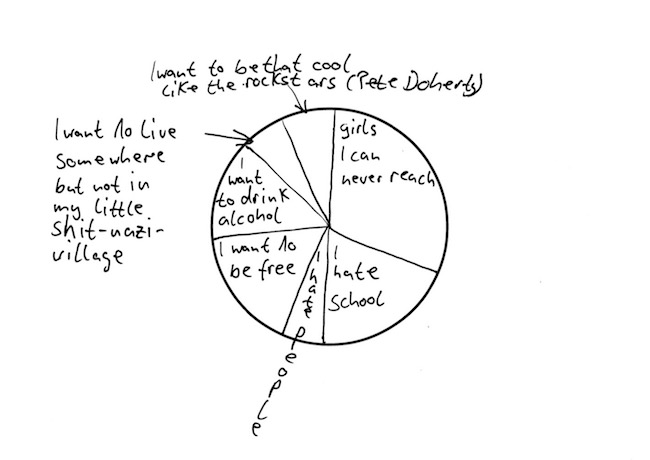 I want to be that cool
like the rockstars (Pete Doherty)
I want to live
somewhere
but not in
my little
shit-nazi-
village
girls
I can
never reach
I want
to drink
alcohol
I want to
be free
I hate people
I hate
school